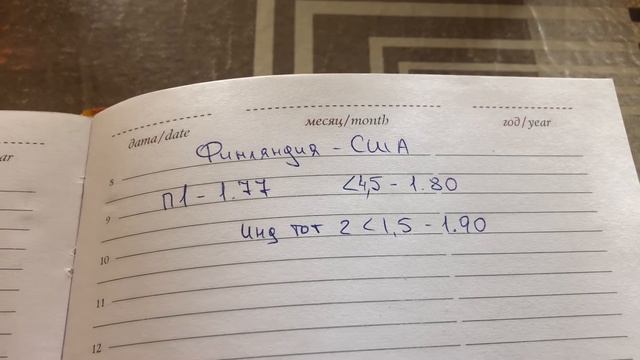 ar
дата/date
месяц/month
год/year
Финляндия - США
8
П1 - 1.77 <4,5 - 1.80
9
инд тот 2 <1,5 - 1.90
10
11
12